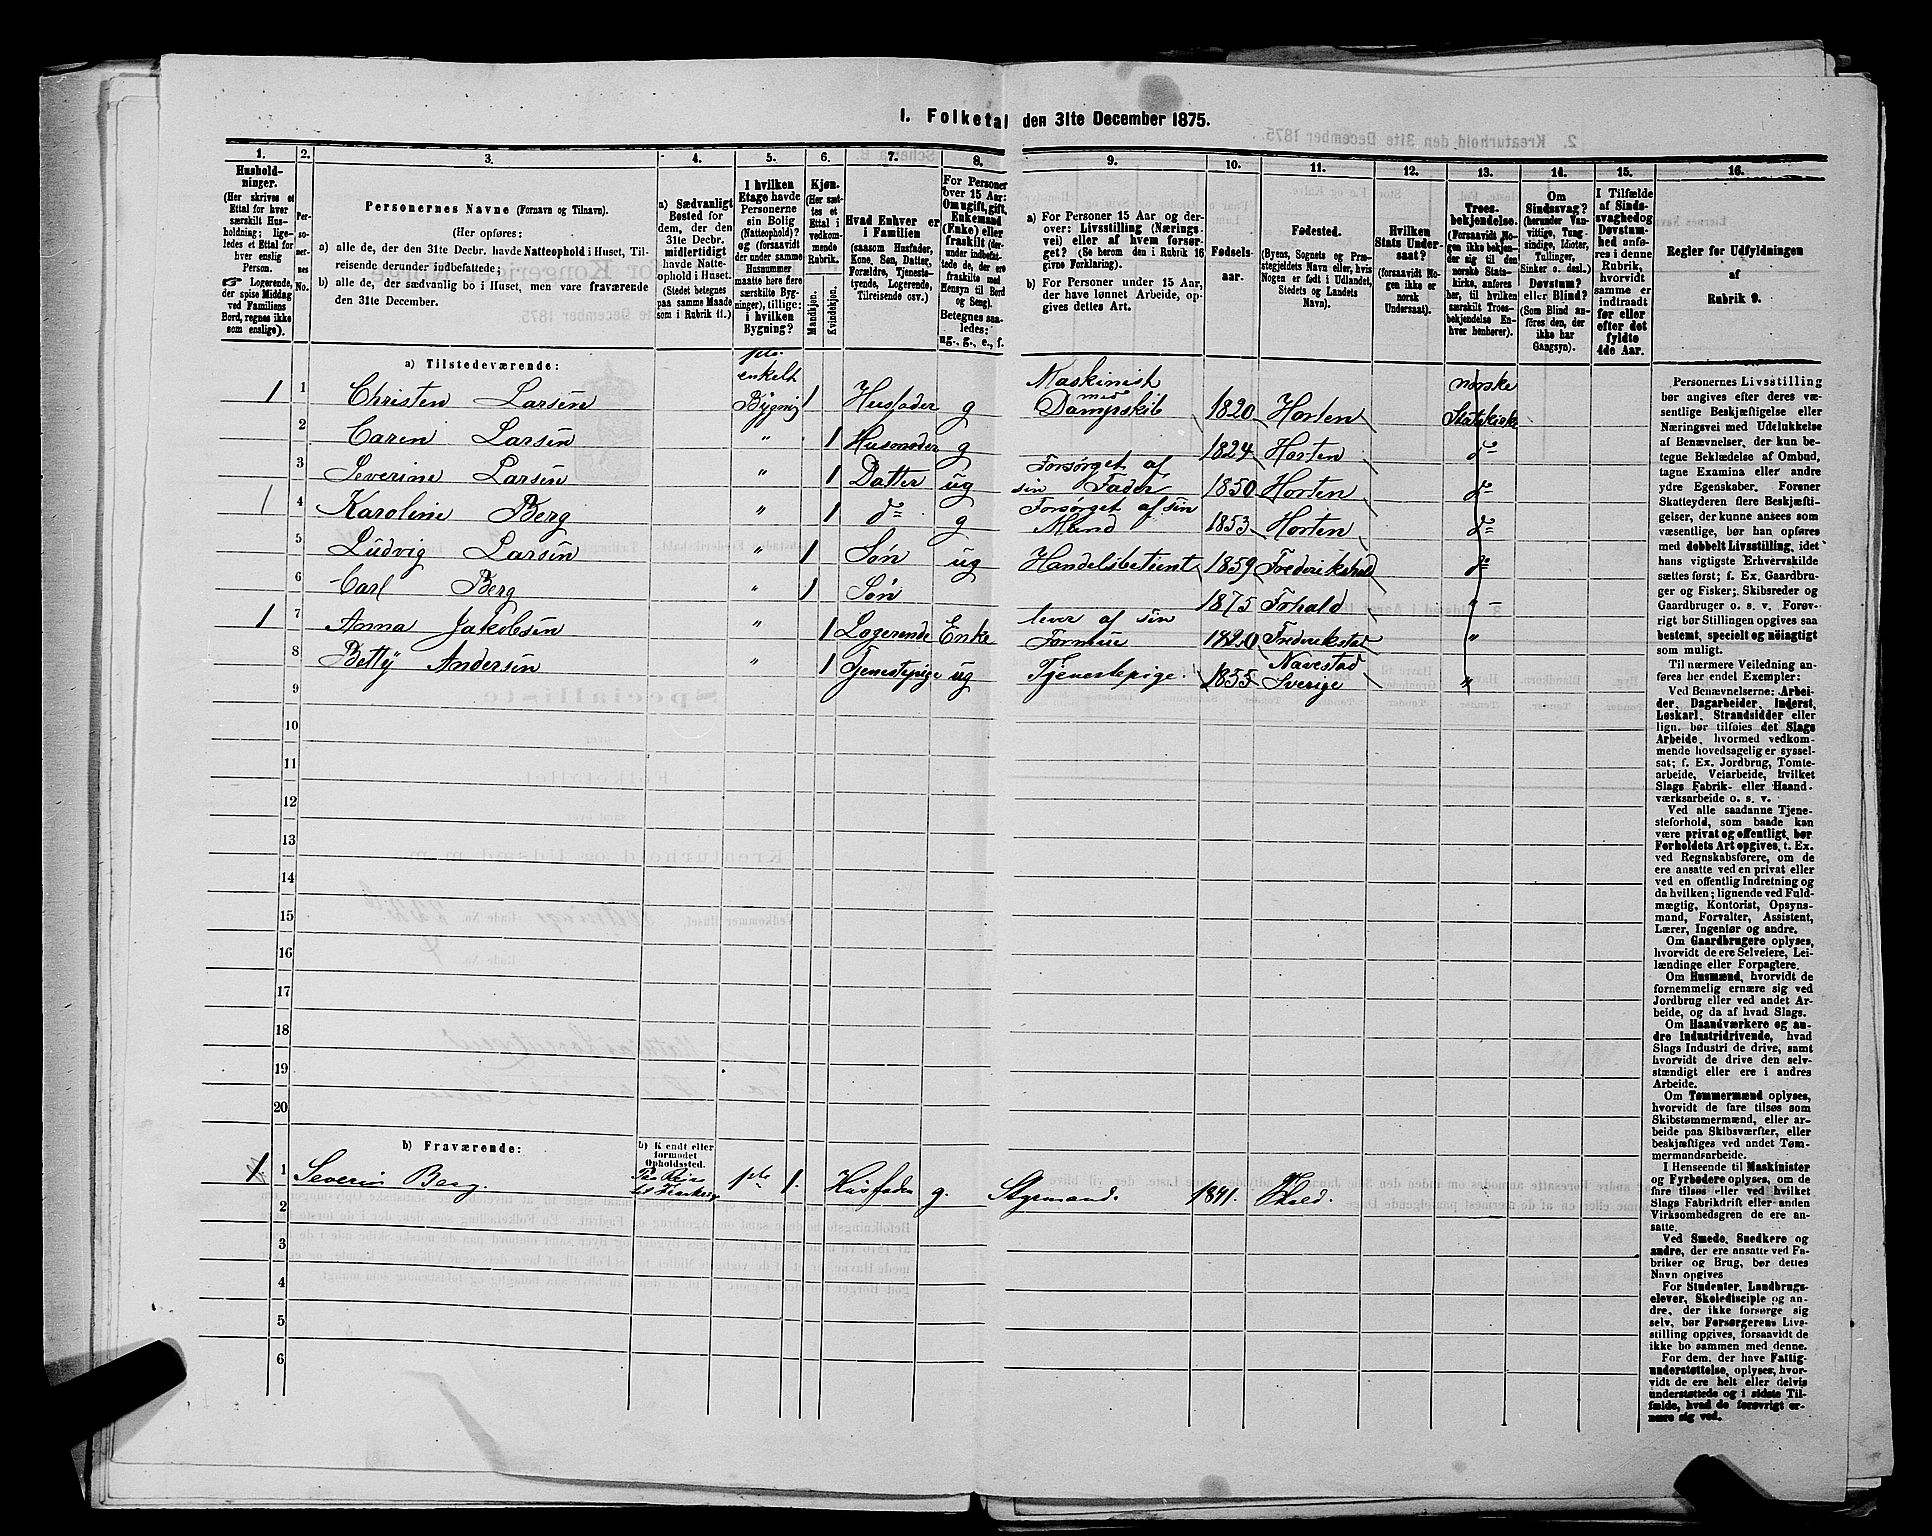 I. Folketal den 31te December 1875.
1.
Hushold-
ninger.
(Her skrives et
Ettal for hver
særskilt Hus-
holdning; lige-
ledes et Ettal for
hver enslig
Person.
☞ Logerende,
der spise Middag
ved Familiens
Bord, regnes ikke
som enslige).
2.
Per-
so-
ner-
nes
No.
3.
Personernes Navne (Fornavn og Tilnavn).
(Her opføres:
a) alle de, der den 31te Decbr. havde Natteophold i Huset, Til-
reisende derunder indbefattede;
b) alle de, der sædvanlig bo i Huset, men vare fraværende
den 31te December.
4.
a) Sædvanligt
Bosted for
dem, der den
31te Decbr.
midlertidigt
havde Natte-
ophold i Huset.
(Stedet betegnes
paa samme Maade
som i Rubrik 11.)
5.
I hvilken
Etage havde
Personerne
sin Bolig
(Natteophold)?
og (forsaavidt
der under samme
Husnummer
maatte høre flere
særskilte Byg-
ninger), tillige:
i hvilken
Bygning?
6.
Kjøn.
(Her sæt-
tes et
Ettal i
vedkom-
mende
Rubrik.
Mandkjøn.
Kvindekjøn.
7.
Hvad Enhver er
i Familien
(saasom Husfader,
Kone, Søn, Datter,
Forældre, Tjeneste-
tyende, Logerende,
Tilreisende osv.)
8.
For Personer
over 15 Aar:
Om ugift, gift,
Enkemand
(Enke) eller
fraskilt (der-
under indbefat-
tede de, der ere
fraskilte med
Hensyn til Bord
og Seng).
Betegnes saa-
ledes:
ug., g., e., f.
9.
a) For Personer 15 Aar og der-
over: Livsstilling (Nærings-
vei) eller af hvem forsør-
get? (Se herom den i Rubrik 16
givne Forklaring).
b) For Personer under 15 Aar,
der have lønnet Arbeide, op-
gives dettes Art.
10.
Fødsels-
aar.
11.
Fødested.
(Byens, Sognets og Præ-
stegjeldets Navn eller, hvis
Nogen er født i Udlandet,
Stedets og Landets
Navn).
12.
Hvilken
Stats Under-
saat?
(forsaavidt No-
gen ikke er
norsk
Undersaat).
13.
Troes-
bekjendelse.
(Forsaavidt No-
gen ikke bekjen-
der sig til den
norske Stats-
kirke, anføres
her, til hvilken
særskilt Troes-
bekjendelse En-
hver henhører).
14.
Om
Sindssvag?
(herunder Van-
vittige, Tung-
sindige, Idioter,
Tullinger,
Sinker o. desl.)
Døvstum?
eller Blind?
(Som Blind an-
føres den, der
ikke har
Gangsyn).
15.
I Tilfælde
af Sinds-
svaghed og
Døvstum-
hed anfø-
res i denne
Rubrik,
hvorvidt
samme er
indtraadt
før eller
efter det
fyldte
4de Aar.
16.
Regler for Udfyldningen
af
Rubrik 9.
a) Tilstedeværende:
1 1 Christen Larsen pte. enkelt Bygnig 1 Husfader g Maskinist med Dampskib 1820 Horten norske Statskirke
2 Caren Larsen " 1 Husmoder g 1824 Horten do
3 Severine Larsen " 1 Datter ug Forsørget af sin Fader 1850 Horten do
1 4 Karoline Berg " 1 do g Forsørget af sin Mand 1853 Horten do
5 Ludvig Larsen " 1 Søn ug Handelsbetient 1859 Frederikshald do
6 Carl Berg 1 Søn 1875 Frhald "
1 7 Anna Jakobsen " 1 Logerende Enke lever af sin Formue 1820 Frederikstad "
8 Betty Andersen " 1 Tjenestepige ug Tjenestepige. 1855 Navestad Sverige "
9
10
11
12
13
14
15
16
17
18
19
20
b) Fraværende:
b) Kjendt eller
formodet
Opholdssted.
1. 1 Severin Berg. Paa Reise til pte 1. Husfader g. Styrmand. 1841. Fhald.
2
3
4
5
6
Personernes Livsstilling
bør angives efter deres væ-
sentlige Beskjæftigelse eller
Næringsvei med Udelukkelse
af Benævnelser, der kun be-
tegne Beklædelse af Ombud,
tagne Examina eller andre
ydre Egenskaber. Forener
Skatteyderen flere Beskjæfti-
gelser, der kunne ansees som
væsentlige, bør han opføres
med dobbelt Livsstilling, idet
hans vigtigste Erhvervskilde
sættes først; f. Ex. Gaardbru-
ger og Fisker; Skibsreder og
Gaardbruger o. s. v. Forøv-
rigt bør Stillingen opgives saa
bestemt, specielt og nøiagtigt
som muligt.
Til nærmere Veiledning an-
føres her endel Exempler:
Ved Benævnelserne: Arbei-
der, Dagarbeider, Inderst,
Løskarl, Strandsidder eller
lign. bør tilføies det Slags
Arbeide, hvormed vedkom-
mende hovedsagelig er syssel-
sat; f. Ex. Jordbrug, Tomte-
arbeide, Veiarbeide, hvilket
Slags Fabrik- eller Haand-
værksarbeide o. s. v.
Ved alle saadanne Tjene-
steforhold, som baade kan
være privat og offentligt, bør
Forholdets Art opgives, t. Ex.
ved Regnskabsførere, om de
ere ansatte ved en privat eller
ved en offentlig Indretning og
da hvilken; lignende ved Fuld-
mægtig, Kontorist, Opsyns-
mand, Forvalter, Assistent,
Lærer, Ingeniør og andre.
Om Gaardbrugere oplyses,
hvorvidt de ere Selveiere, Lei-
lændinge eller Forpagtere.
Om Husmænd, hvorvidt de
fornemmelig ernære sig ved
Jordbrug eller ved andet Ar-
beide, og da af hvad Slags.
Om Haandværkere og an-
dre Industridrivende, hvad
Slags Industri de drive, samt
hvorvidt de drive den selv-
stændigt eller ere i andres
Arbeide.
Om Tømmermænd oplyses,
hvorvidt de fare tilsøs som
Skibstømmermænd, eller ar-
beide paa Skibsværfter, eller
beskjæftiges ved andet Tøm-
mermandsarbeide.
I Henseende til Maskinister
og Fyrbødere oplyses, om de
fare tilsøs eller ved hvilket
Slags Fabrikdrift eller anden
Virksomhedsgren de ere an-
satte.
Ved Smede, Snedkere og
andre, der ere ansatte ved Fa-
briker og Brug, bør dettes
Navn opgives
For Studenter, Landbrugs-
elever, Skoledisciple og an-
dre, der ikke forsørge sig
selv, bør Forsørgerens Livs-
stilling opgives, forsaavidt de
ikke bo sammen med denne.
For dem, der have Fattig-
understøttelse, oplyses, hvor-
vidt de ere helt eller delvis
understøttede og i sidste Til-
fælde, hvad de forøvrigt er-
nære sig ved.